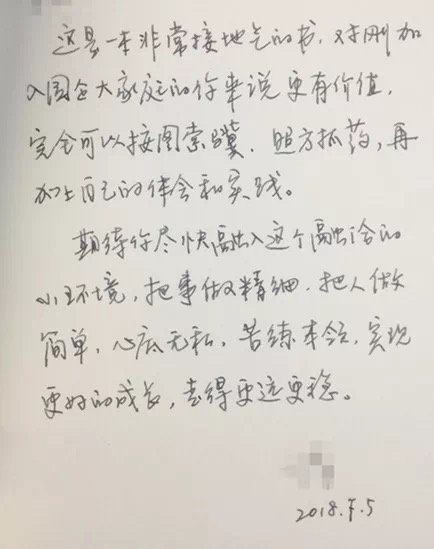 这是一本非常接地气的书，对刚加
入国企大家庭的你来说更有价值，
完全可以按图索骥、照方抓药，再
加上自己的体会和实践。
期待你尽快融入这个融洽的
小环境，把事做精细，把人做
简单，心底无私，苦练本领，实现
更好的成长，走得更远更稳。
2018.5.5